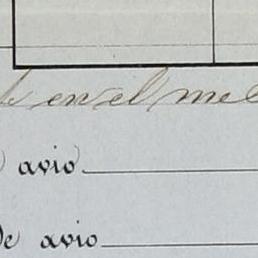 en el me
avio
de avio